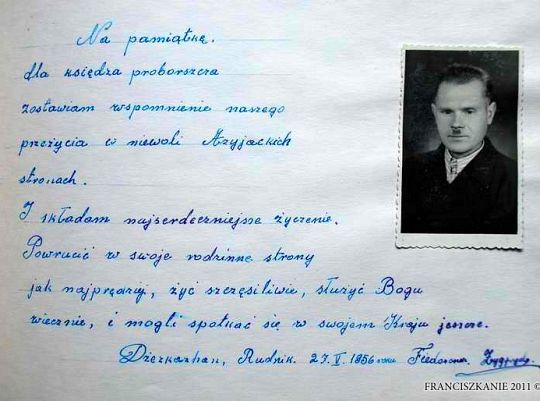 Na pamiątkę.
dla księdza proborszcza
zostawiam wspomnienie naszego
przeżycia w niewoli Azyjackich
stronach.
I składam najserdeczniejsze życzenie.
Powrucić w swoje rodzinne strony
jak najprędzej, żyć szczęsiliwie, służyć Bogu
wiecznie, i mogli spotkać się w swojem Kraju jeszcze.
Dżezkazhan, Rudnik. 27. V. 1956 roku
FRANCISZKANIE 2011 ©